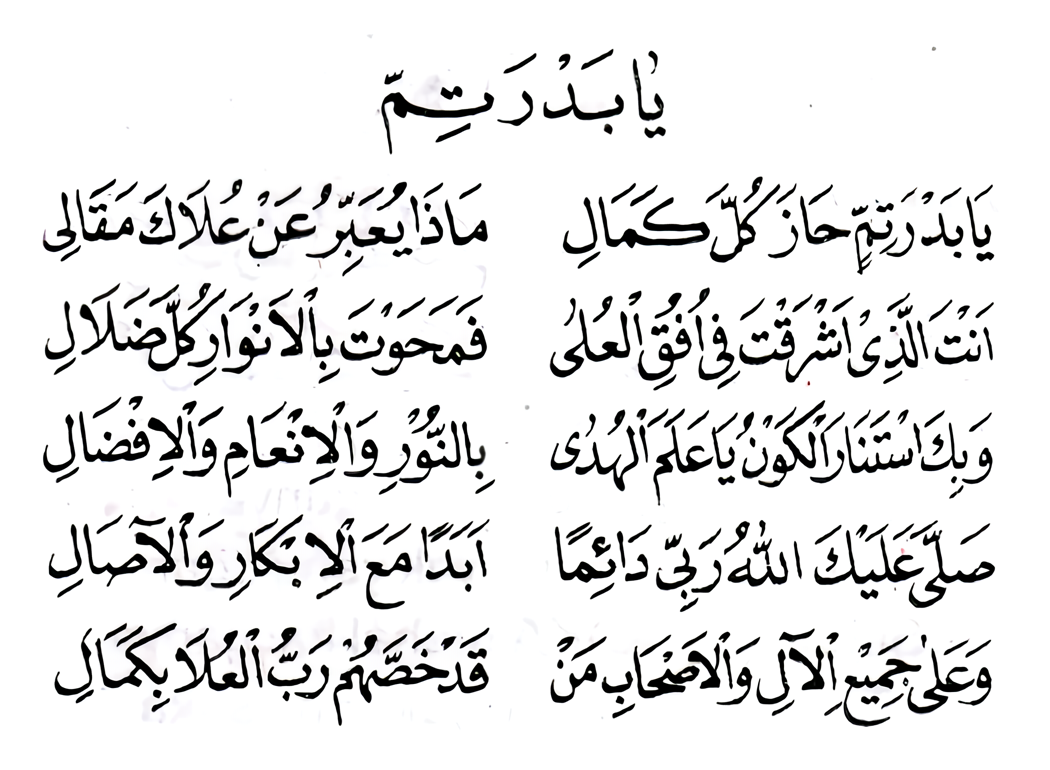 يَا بَدْرَ تِمّ
يَا بَدْرَ تِمٍّ حَازَ كُلَّ كَمَالِ مَاذَا يُعَبِّرُ عَنْ عُلَاكَ مَقَالِى
اَنْتَ الَّذِىْ اَشْرَقْتَ فِى اُفُقِ الْعُلٰى فَمَحَوْتَ بِالْاَنْوَارِ كُلَّ ضَلَالِ
وَبِكَ اسْتَنَارَ الْكَوْنُ يَا عَلَمَ الْهُدٰى بِالنُّوْرِ وَالْاِنْعَامِ وَالْاِفْضَالِ
صَلَّى عَلَيْكَ اللهُ رَبِّى دَائِمًا اَبَدًا مَعَ الْاِبْكَارِ وَالْآصَالِ
وَعَلٰى جَمِيْعِ الْآلِ وَالْاَصْحَابِ مَنْ قَدْ خَصَّهُمْ رَبُّ الْعُلَا بِكَمَالِ